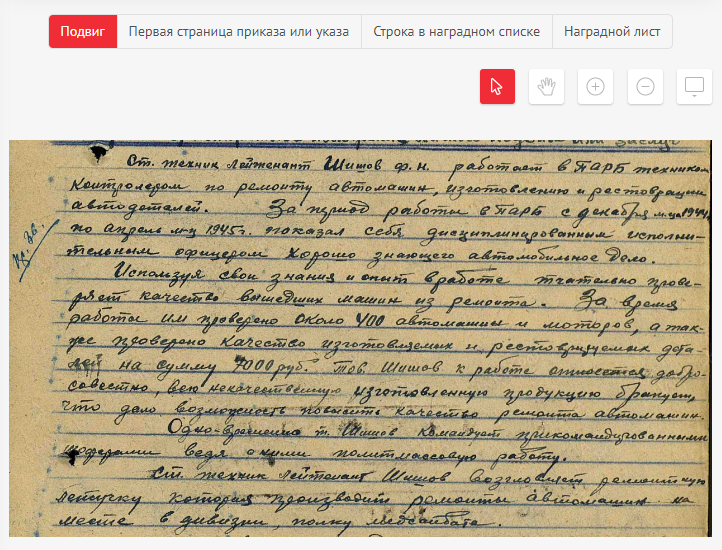 Подвиг
Первая страница приказа или указа
Строка в наградном списке
Наградной лист
Ст. техник лейтенант Шишов Ф.Н. работает в ПАРБ техником
контролером по ремонту автомашин, изготовлению и реставрации
автодеталей. За период работы в ПАРБ с декабря м-ца 1944
по апрель м-ц 1945г. показал себя дисциплинированным исполни-
тельным офицером хорошо знающего автомобильное дело.
Используя свои знания и опыт в работе тчательно прове-
ряет качество вышедших машин из ремонта. За время
работы им проверено около 400 автомашин и моторов, а так-
же проверено качество изготовляемых и реставрируемых дета-
лей на сумму 7000 руб. Тов. Шишов к работе относется добро-
совестно, всю некачественную изготовленную продукцию бракует,
что дало возможность повысить качество ремонта автомашин.
Одно-временно т. Шишов командует прикомандированными
шоферами ведя с ними политмассовую работу.
Ст. техник лейтенант Шишов возглавляет ремонтную
летучку которая производит ремонты автомашин на
месте в дивизии, полку медсанбате.